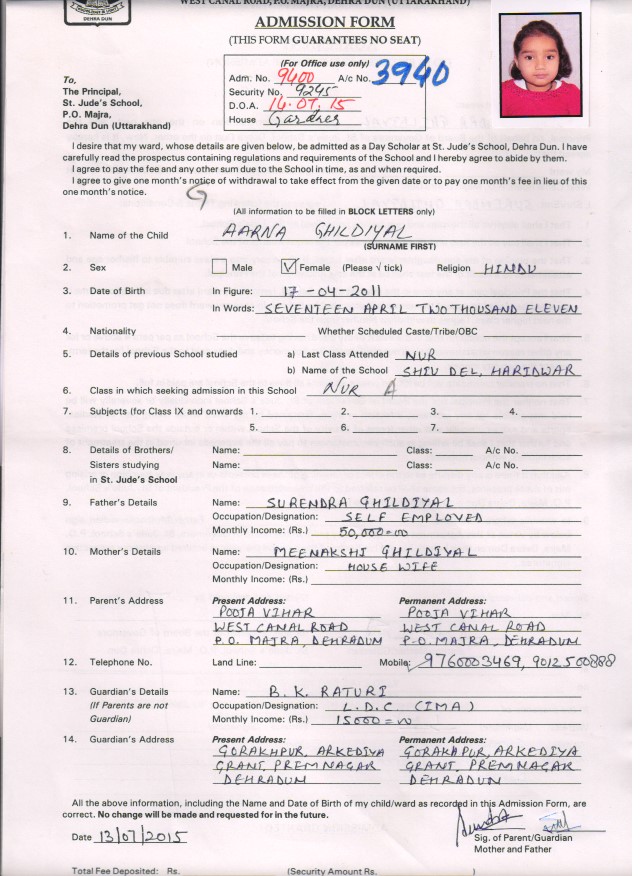 DEHRA DUN
WEST CANAL ROAD, P.O. MAJRA, DEHRA DUN (UTTARAKHAND)
ADMISSION FORM
(THIS FORM GUARANTEES NO SEAT)
(For Office use only)
Adm. No. 9400 A/c No. 3940
Security No. 9245
D.O.A. 14.07.15
House Gardner
To,
The Principal,
St. Jude's School,
P.O. Majra,
Dehra Dun (Uttarakhand)
I desire that my ward, whose details are given below, be admitted as a Day Scholar at St. Jude's School, Dehra Dun. I have
carefully read the prospectus containing regulations and requirements of the School and I hereby agree to abide by them.
I agree to pay the fee and any other sum due to the School in time, as and when required.
I agree to give one month's notice of withdrawal to take effect from the given date or to pay one month's fee in lieu of this
one month's notice.
(All information to be filled in BLOCK LETTERS only)
1. Name of the Child AARNA GHILDIYAL
(SURNAME FIRST)
2. Sex Male √ Female (Please √ tick) Religion HINDU
3. Date of Birth In Figure: 17-04-2011
In Words: SEVENTEEN APRIL TWO THOUSAND ELEVEN
4. Nationality Whether Scheduled Caste/Tribe/OBC
5. Details of previous School studied a) Last Class Attended NUR
b) Name of the School SHIV DEL, HARIDWAR
6. Class in which seeking admission in this School NUR A
7. Subjects (for Class IX and onwards 1. 2. 3. 4.
5. 6. 7.
8. Details of Brothers/ Name: Class: A/c No.
Sisters studying Name: Class: A/c No.
in St. Jude's School
9. Father's Details Name: SURENDRA GHILDIYAL
Occupation/Designation: SELF EMPLOYED
Monthly Income: (Rs.) 50,000=00
10. Mother's Details Name: MEENAKSHI GHILDIYAL
Occupation/Designation: HOUSE WIFE
Monthly Income: (Rs.)
11. Parent's Address Present Address: Permanent Address:
POOJA VIHAR POOJA VIHAR
WEST CANAL ROAD WEST CANAL ROAD
P.O. MAJRA, DEHRADUN P.O. MAJRA, DEHRADUN
12. Telephone No. Land Line: Mobile: 9760003469, 9012500888
13. Guardian's Details Name: B.K. RATURI
(If Parents are not Occupation/Designation: L.D.C (IMA)
Guardian) Monthly Income: (Rs.) 15000=00
14. Guardian's Address Present Address: Permanent Address:
GORAKHPUR, ARKEDIYA GORAKHPUR, ARKEDIYA
GRANT, PREMNAGAR GRANT, PREMNAGAR
DEHRADUN DEHRADUN
All the above information, including the Name and Date of Birth of my child/ward as recorded in this Admission Form, are
correct. No change will be made and requested for in the future.
Date 13/07/2015 Sig. of Parent/Guardian
Mother and Father
Total Fee Deposited: Rs. (Security Amount Rs. )